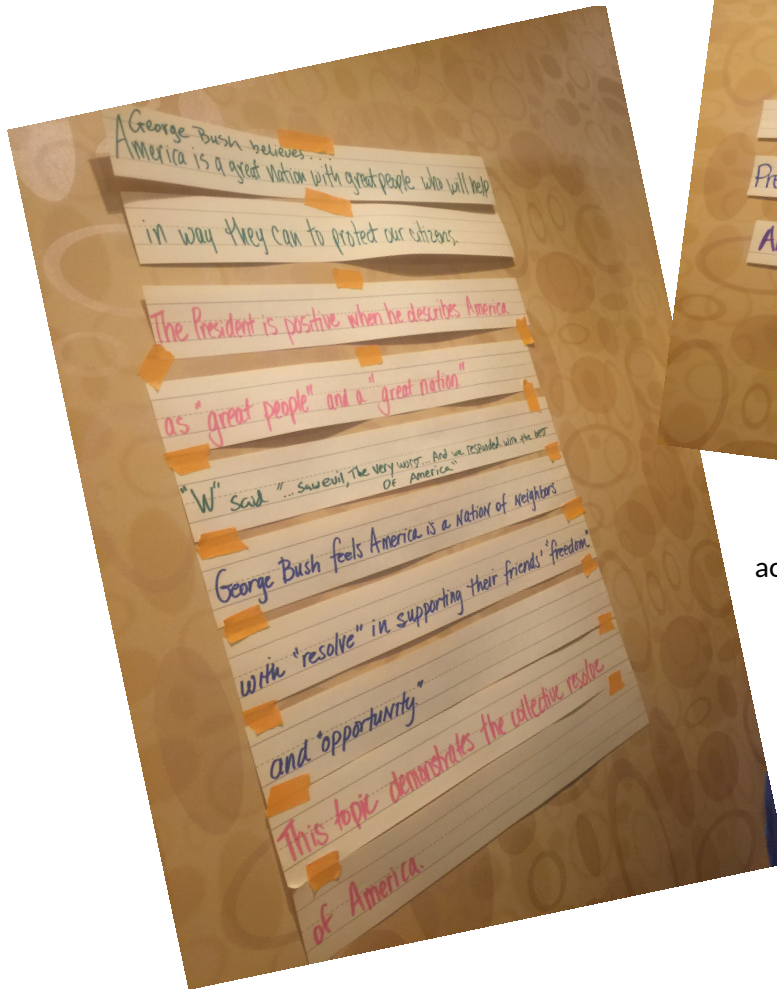 George Bush believes...
America is a great nation with great people who will help
in way they can to protect our citizens.
The President is positive when he describes America
as "great people" and a "great nation"
"W" said "... saw evil, The very worst... And we responded with the best
OF America"
George Bush feels America is a Nation of Neighbors
with "resolve" in supporting their friends' "freedom"
and "opportunity."
This topic demonstrates the collective resolve
of America.